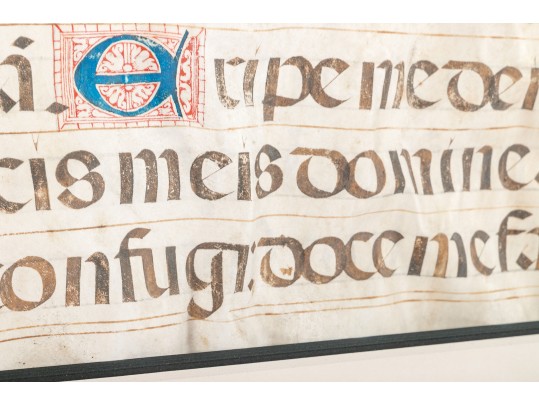 á. Eripe me de in
cis meis domine.
confugi: doce me fa